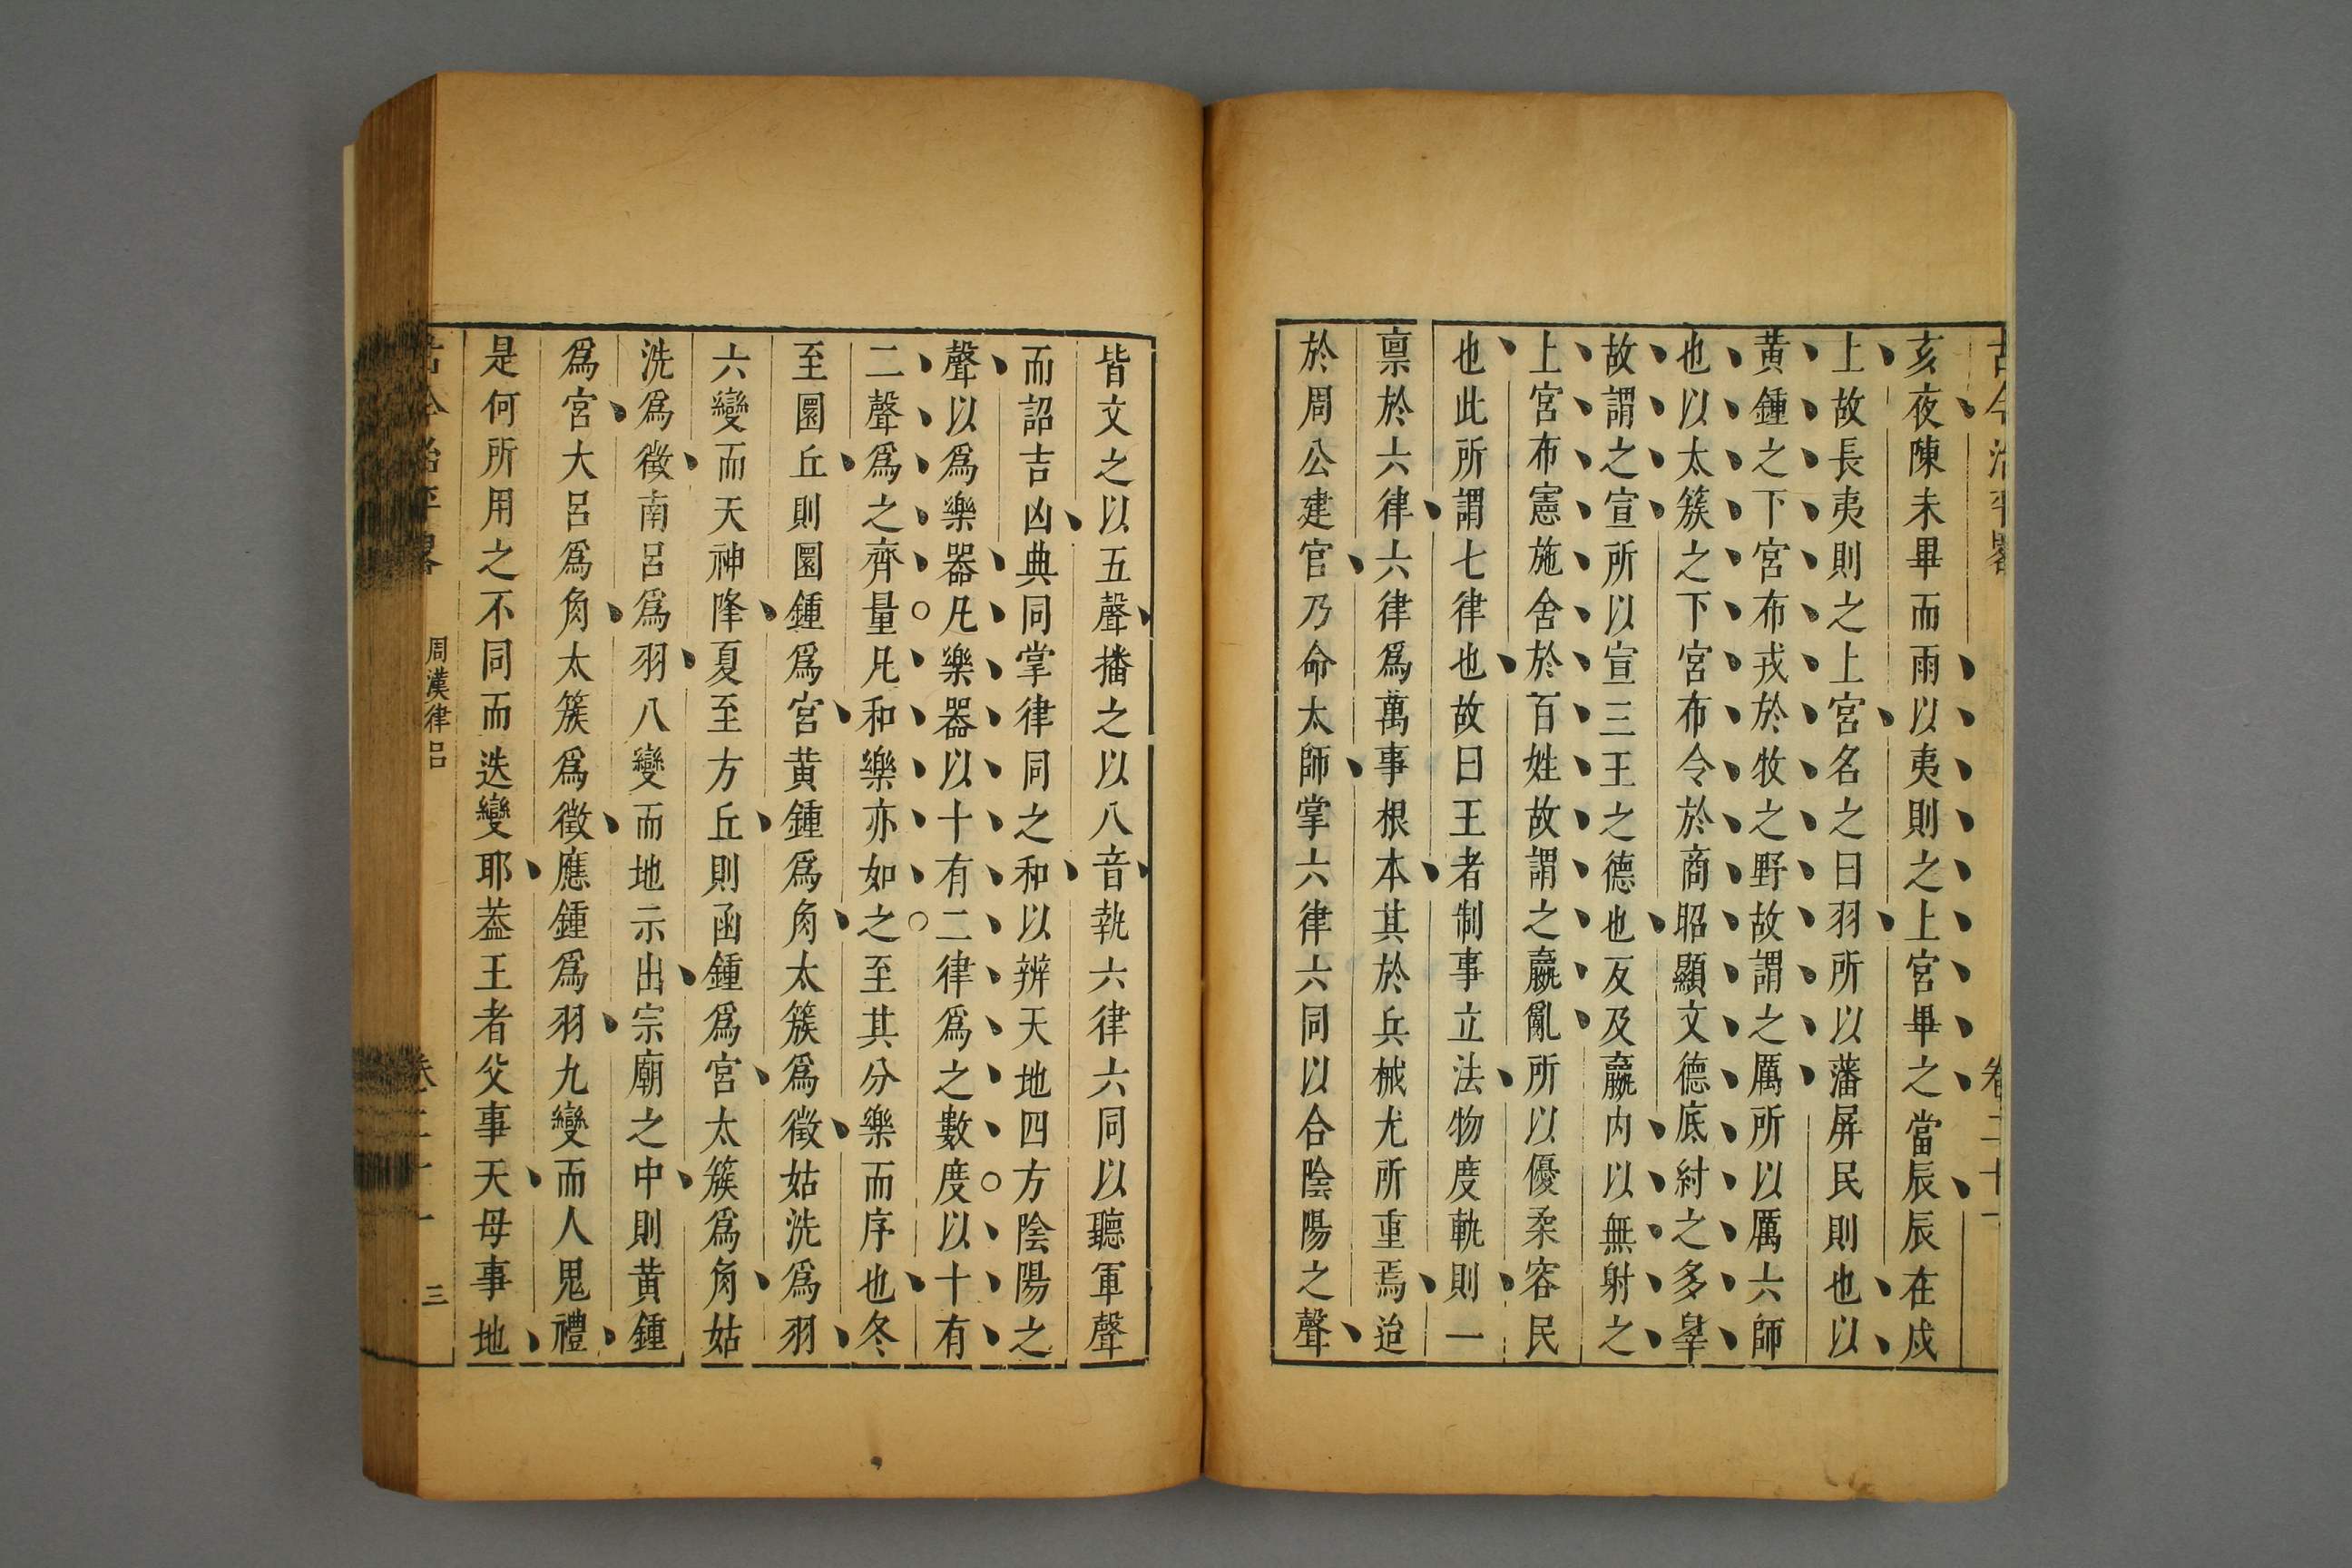 古今治平畧 卷二十一
亥夜陳未畢而雨以夷則之上宮畢之當辰辰在戌
上故長夷則之上宮名之曰羽所以藩屏民則也以
黃鍾之下宮布戎於牧之野故謂之厲所以厲六師
也以太簇之下宮布令於商昭顯文德底紂之多辠
故謂之宣所以宣三王之德也反及嬴内以無射之
上宮布憲施舍於百姓故謂之嬴亂所以優柔容民
也此所謂七律也故曰王者制事立法物度軌則一
禀於六律六律爲萬事根本其於兵械尤所重焉迨
於周公建官乃命太師掌六律六同以合陰陽之聲
皆文之以五聲播之以八音執六律六同以聽軍聲
而詔吉凶典同掌律同之和以辨天地四方陰陽之
聲以爲樂器凡樂器以十有二律爲之數度以十有
二聲爲之齊量凡和樂亦如之至其分樂而序也冬
至圜丘則圜鍾爲宮黃鍾爲角太簇爲徵姑洗爲羽
六變而天神降夏至方丘則函鍾爲宮太簇爲角姑
洗爲徵南呂爲羽八變而地示出宗廟之中則黃鍾
爲宮大呂爲角太簇爲徵應鍾爲羽九變而人鬼禮
是何所用之不同而迭變耶葢王者父事天母事地
古今治平畧 周漢律呂 卷二十一 三